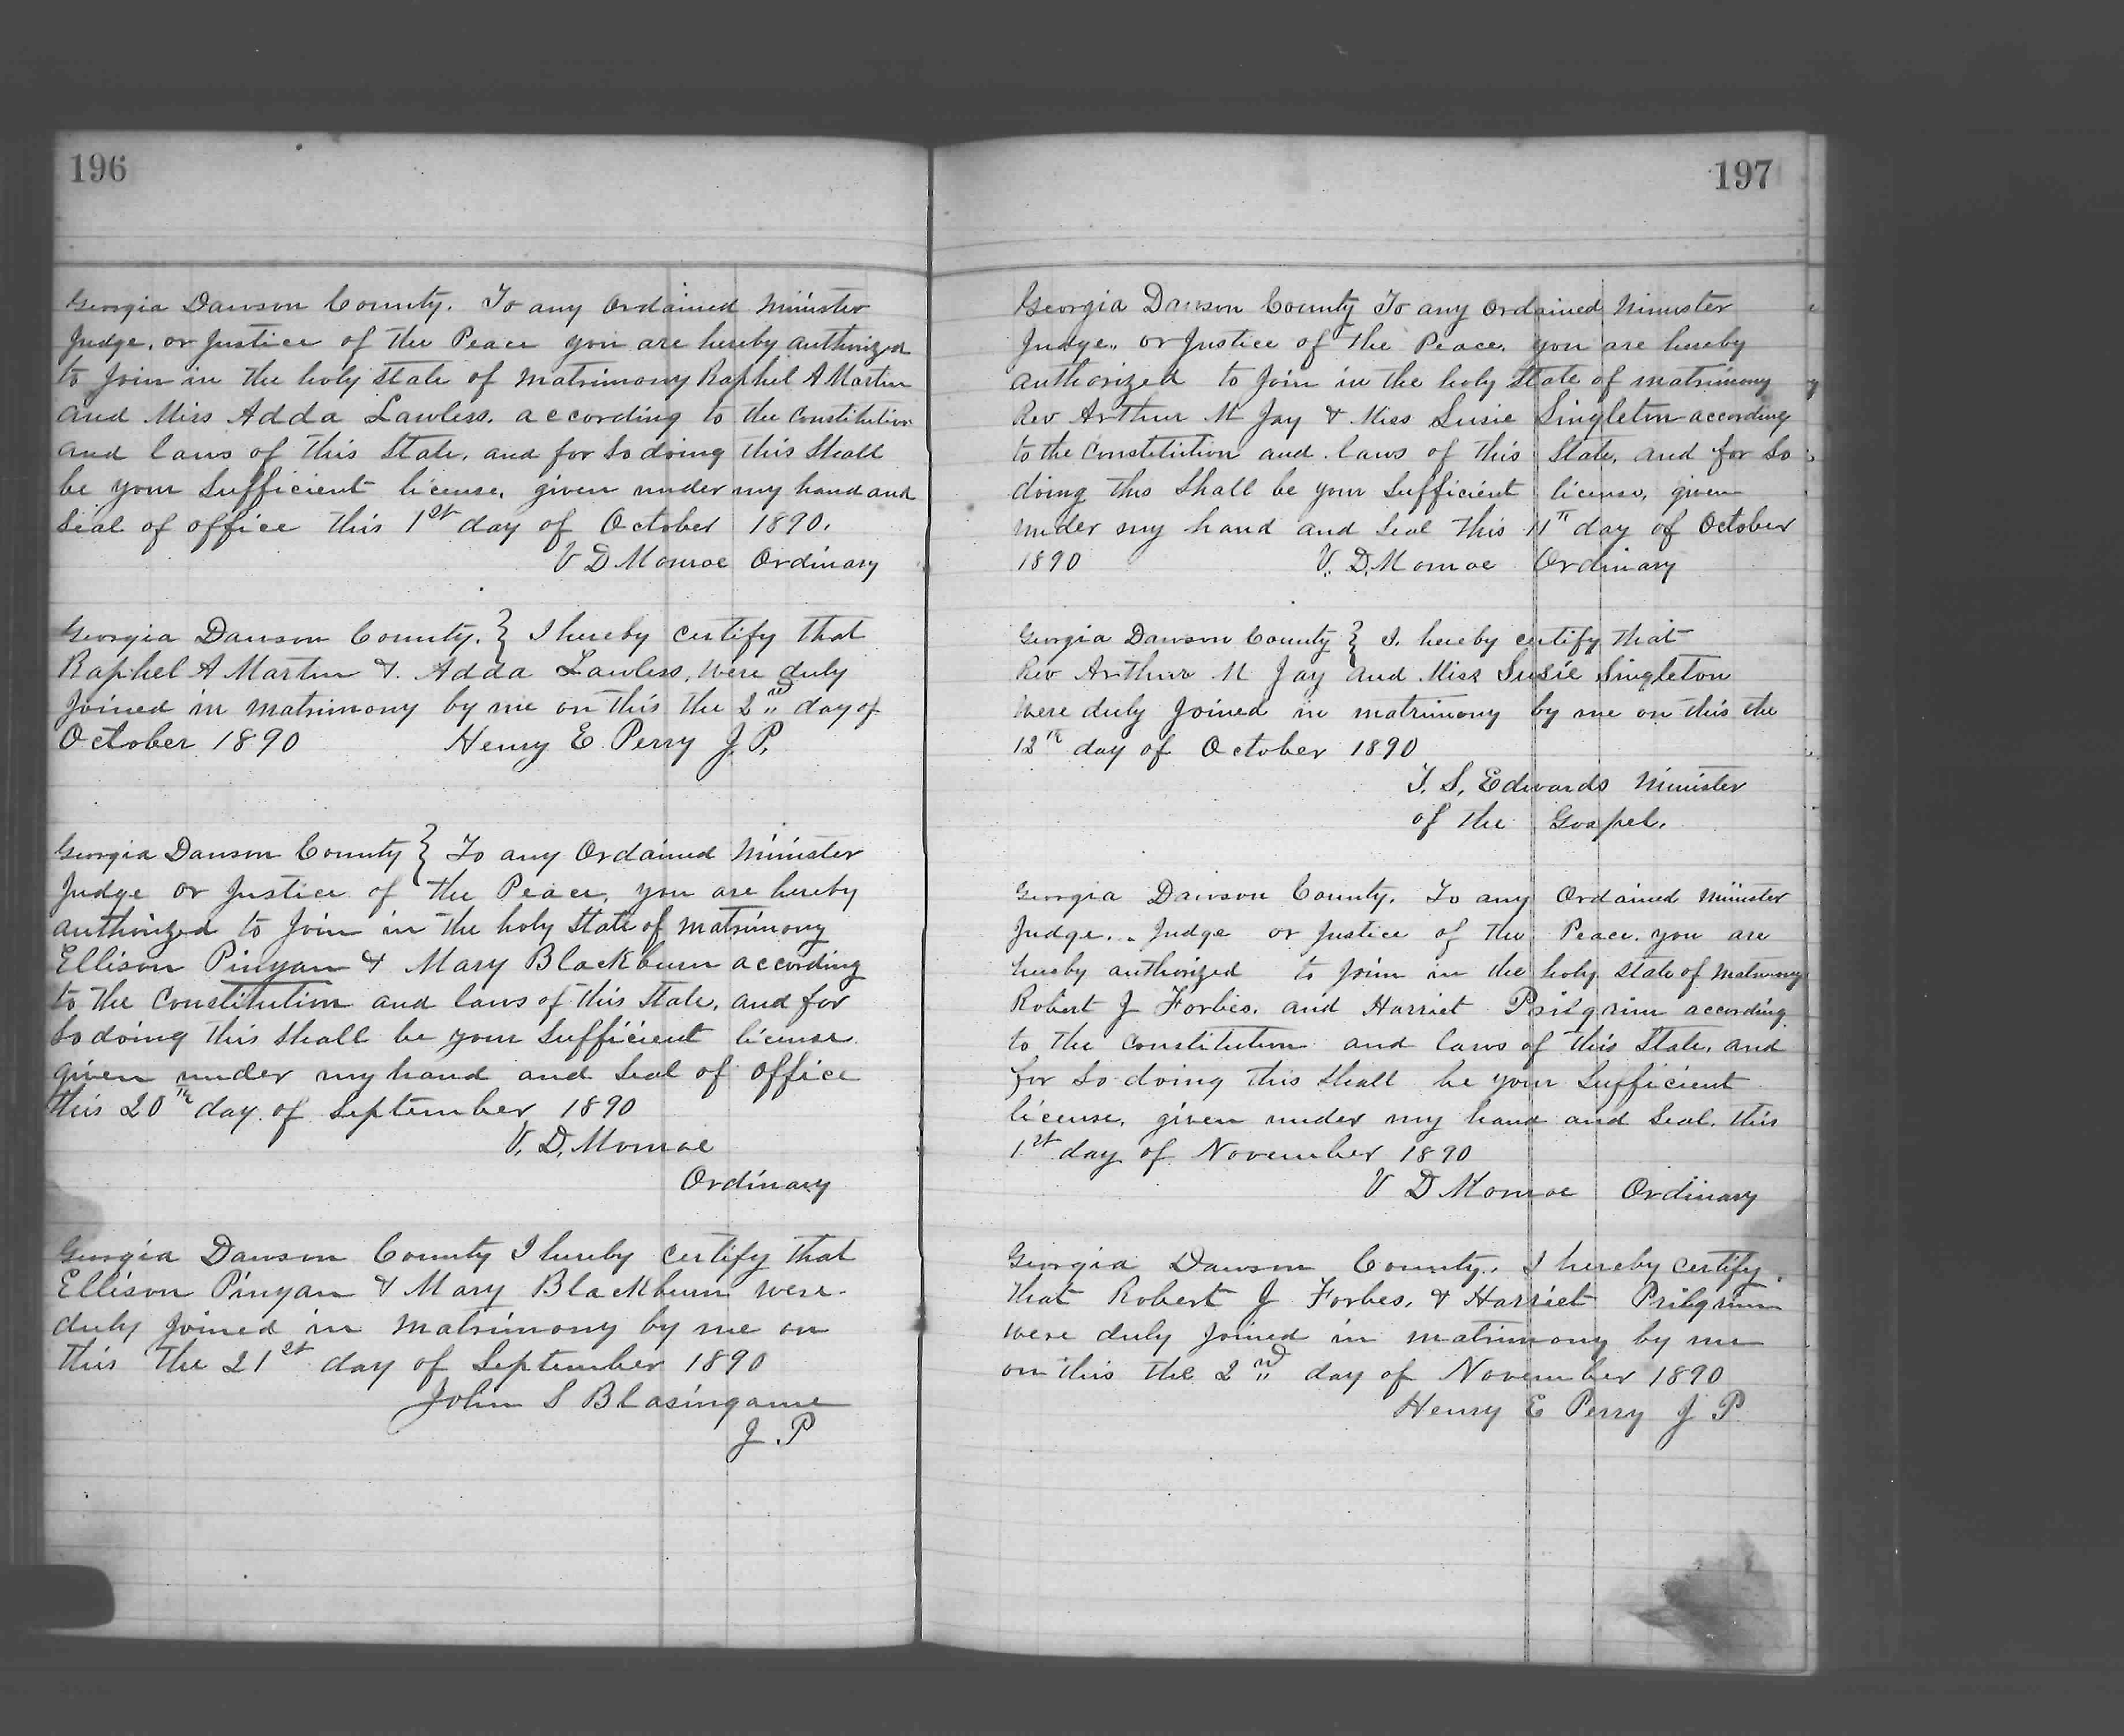 196
Georgia Dawson County. To any Ordained Minister
Judge, or Justice of the Peace you are hereby authorized
to Join in the holy State of matrimony Raphel A Martin
and Miss Adda Lawless, according to the Constitution
and laws of this State, and for So doing this Shall
be your Sufficient license, given under my hand and
Seal of office this 1st day of October 1890.
V D Monroe Ordinary
Georgia Dawson County. } I hereby certify that
Raphel A Martin & Adda Lawless, were duly
Joined in matrimony by me on this the 2nd day of
October 1890 Henry E. Perry J. P.
Georgia Dawson County } To any Ordained Minister
Judge or Justice of the Peace, you are hereby
authorized to Join in the holy State of matrimony
Ellison Pinyan & Mary Blackburn according
to the Constitution and laws of this State, and for
So doing this Shall be your Sufficient license
given under my hand and Seal of office
this 20th day of September 1890
V. D. Monroe
Ordinary
Georgia Dawson County I hereby certify that
Ellison Pinyan & Mary Blackburn were
duly Joined in matrimony by me on
this the 21st day of September 1890
John S Blasingame
J. P
197
Georgia Dawson County To any Ordained Minister
Judge,, or Justice of the Peace, you are hereby
authorized to Join in the holy State of matrimony
Rev Arthur M Jay & Miss Susie Singleton according
to the Constitution and laws of this State, and for So
doing this Shall be your Sufficient license, given
under my hand and Seal this 11th day of October
1890 V. D. Monroe Ordinary
Georgia Dawson County } I, hereby certify that
Rev Arthur M Jay and Miss Susie Singleton
were duly Joined in matrimony by me on this the
12th day of October 1890
T. S. Edwards Minister
of the Gospel.
Georgia Dawson County. To any Ordained Minister
Judge,. Judge or Justice of the Peace. you are
hereby authorized to Join in the holy State of matrimony
Robert J Forbes, and Harriet Prilgrim according
to the Constitution and laws of this State, and
for So doing this Shall be your Sufficient
license, given under my hand and Seal, this
1st day of November 1890
V D Monroe Ordinary
Georgia Dawson County. I hereby certify
that Robert J Forbes, & Harriet Prilgrim
were duly Joined in matrimony by me
on this the 2nd day of November 1890
Henry E Perry J P